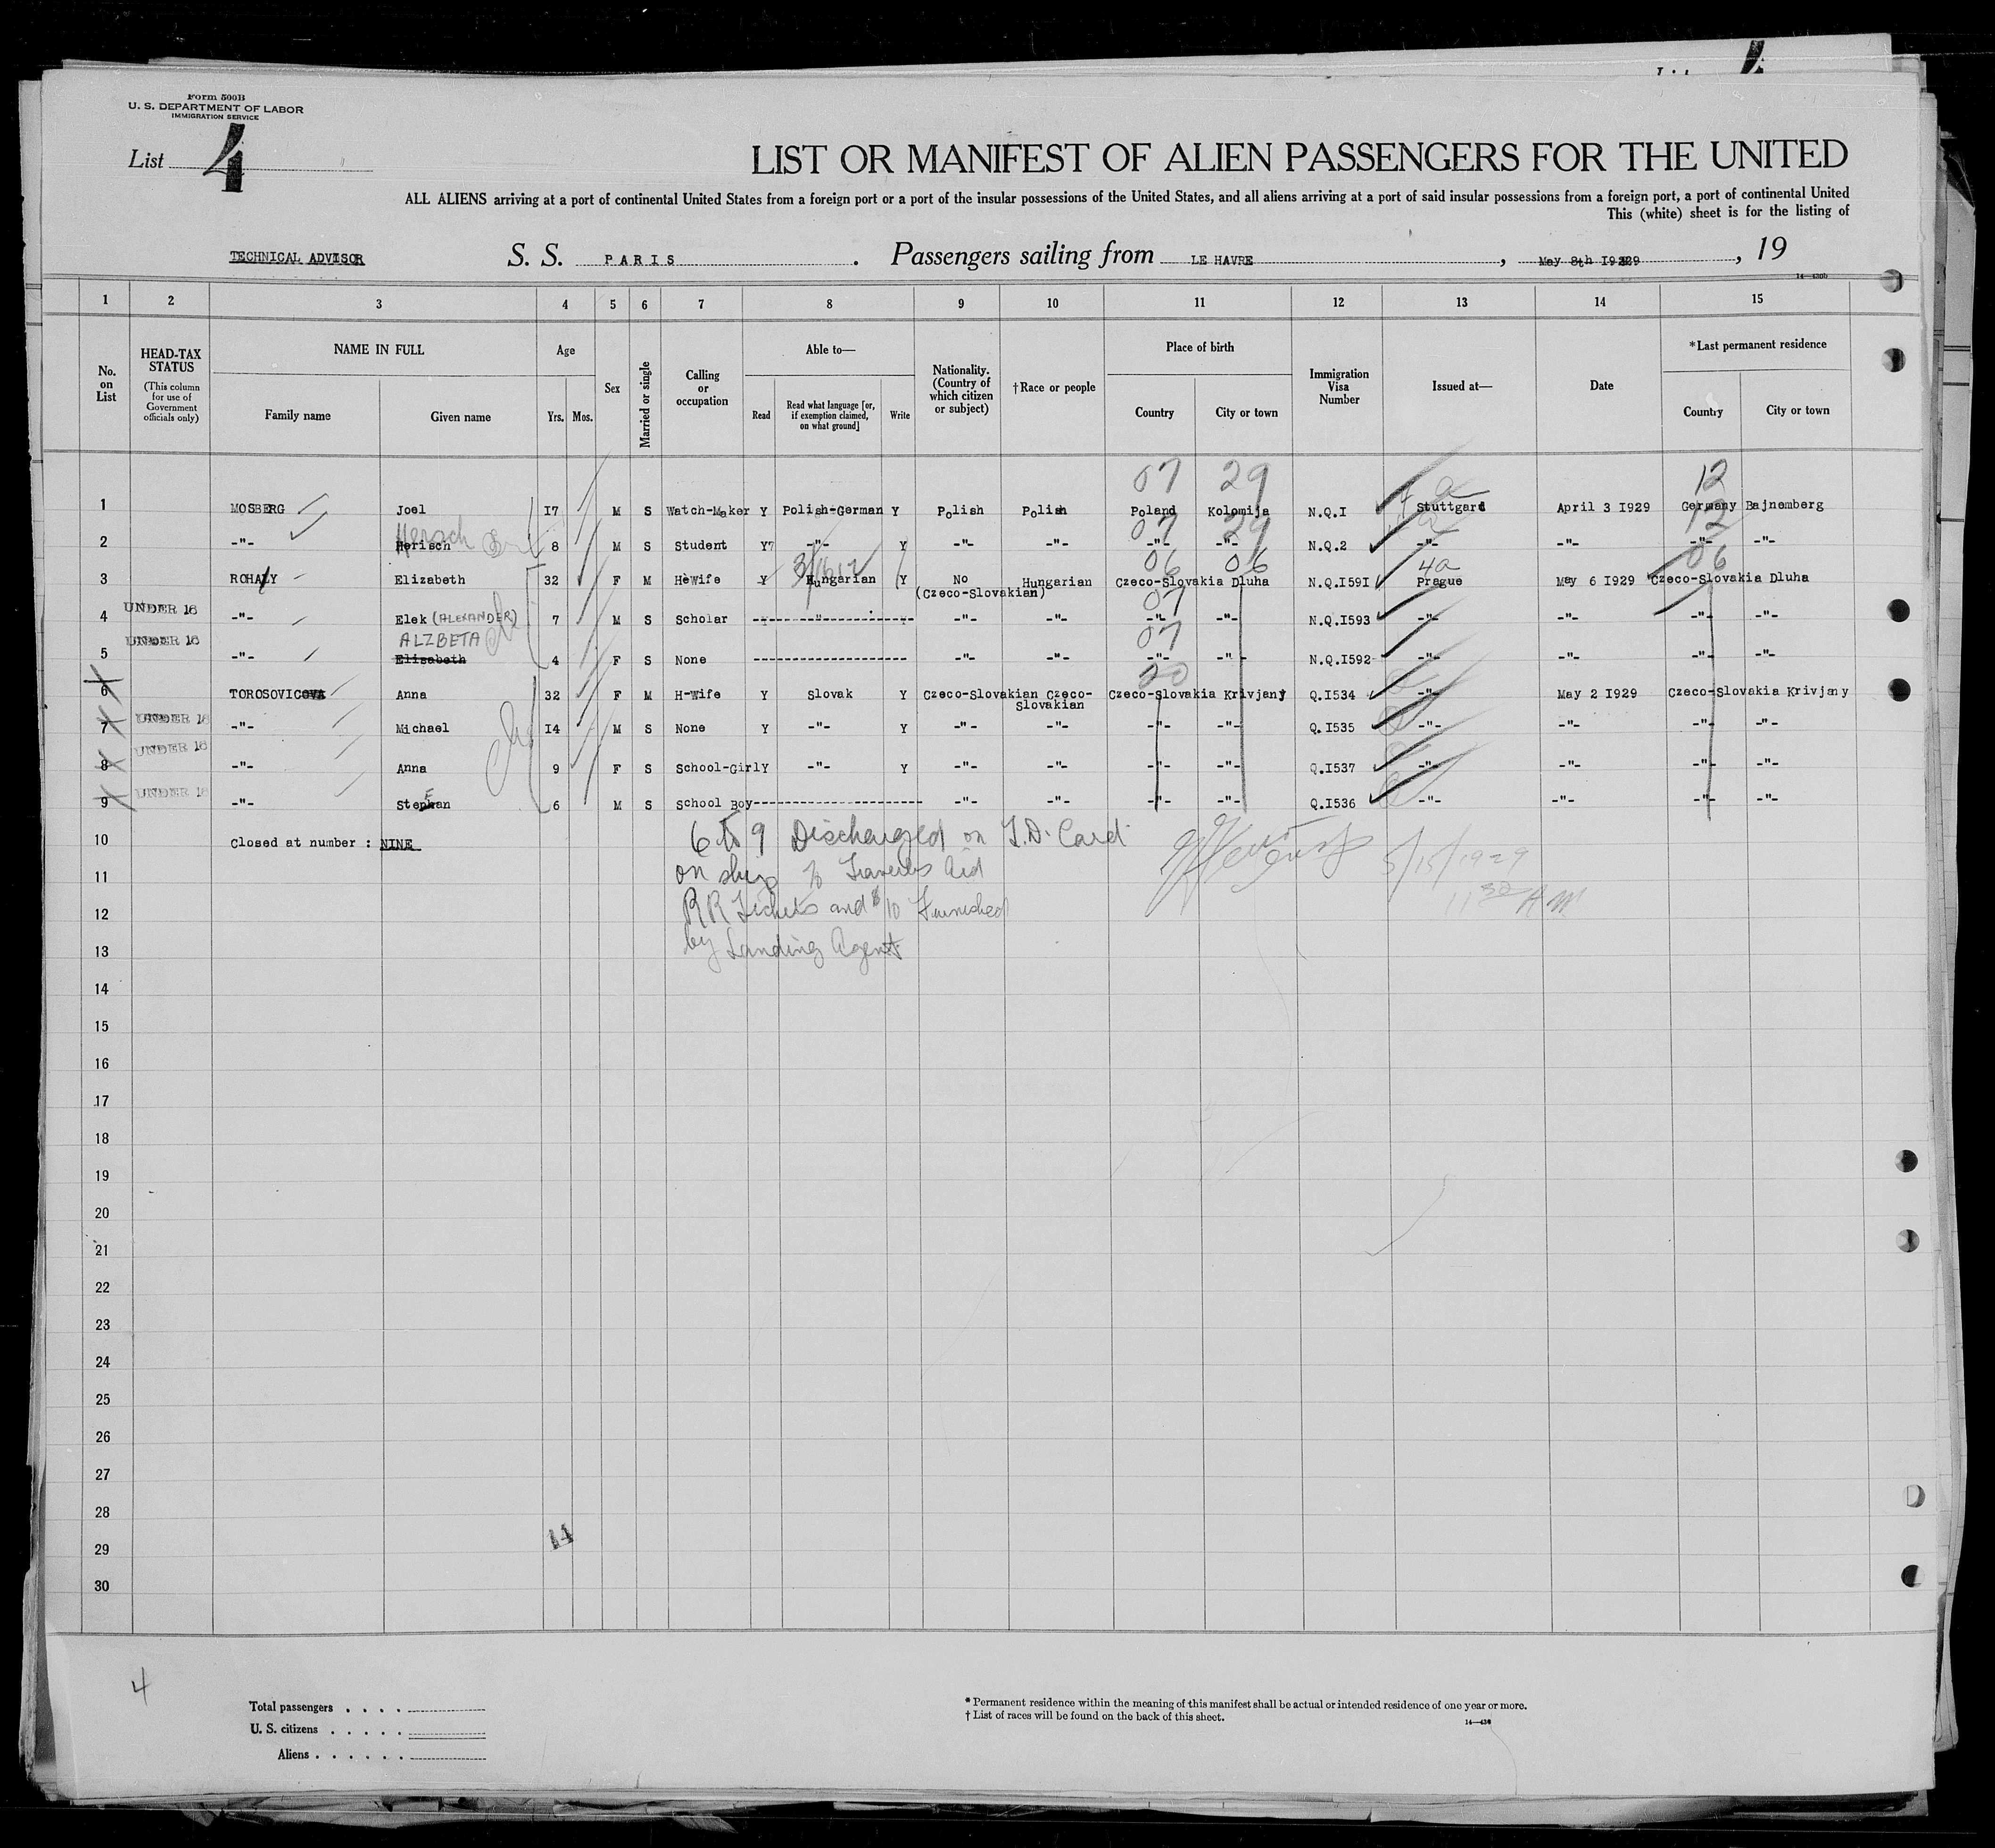 Form 500B
U. S. DEPARTMENT OF LABOR
IMMIGRATION SERVICE
List 4
LIST OR MANIFEST OF ALIEN PASSENGERS FOR THE UNITED
ALL ALIENS arriving at a port of continental United States from a foreign port or a port of the insular possessions of the United States, and all aliens arriving at a port of said insular possessions from a foreign port, a port of continental United
This (white) sheet is for the listing of
TECHNICAL ADVISOR S. S. PARIS . Passengers sailing from LE HAVRE , May 8th I929 , 19
14—430b
1 2 3 4 5 6 7 8 9 10 11 12 13 14 15
No. on List
HEAD-TAX STATUS
(This column for use of Government officials only)
NAME IN FULL
Family name
Given name
Age
Yrs. Mos.
Sex
Married or single
Calling or occupation
Able to—
Read
Read what language [or, if exemption claimed, on what ground]
Write
Nationality. (Country of which citizen or subject)
†Race or people
Place of birth
Country
City or town
Immigration Visa Number
Issued at—
Date
*Last permanent residence
Country
City or town
07 29 12
1 MOSBERG Joel I7 M S Watch-Maker Y Polish-German Y Polish Polish Poland Kolomija N.Q.I Stuttgard April 3 I929 Germany Bajnemberg
Hersch 07 29 12
2 -"- Herisch 8 M S Student Y -"- Y -"- -"- -"- -"- N.Q.2 -"- -"- -"- -"-
06 06 4a 06
3 ROHALY Elizabeth 32 F M HeWife Y Hungarian Y No (Czeco-Slovakian) Hungarian Czeco-Slovakia Dluha N.Q.I59I Prague May 6 I929 Czeco-Slovakia Dluha
07
4 UNDER 16 -"- Elek (ALEXANDER) 7 M S Scholar -"- -"- -"- -"- -"- N.Q.I593 -"- -"- -"- -"-
UNDER 16 ALZBETA 07
5 -"- Elisabeth 4 F S None -"- -"- -"- -"- N.Q.I592 -"- -"- -"- -"-
20
6 TOROSOVICOVA Anna 32 F M H-Wife Y Slovak Y Czeco-Slovakian Czeco-Slovakian Czeco-Slovakia Krivjany Q.I534 -"- May 2 I929 Czeco-Slovakia Krivjany
7 UNDER 16 -"- Michael I4 M S None Y -"- Y -"- -"- -"- -"- Q.I535 -"- -"- -"- -"-
8 UNDER 16 -"- Anna 9 F S School-Girl Y -"- Y -"- -"- -"- -"- Q.I537 -"- -"- -"- -"-
9 UNDER 16 -"- Stephan 6 M S School Boy -"- -"- -"- -"- Q.I536 -"- -"- -"- -"-
10 Closed at number : NINE 6 to 9 Discharged on T.D. Card
11 on ship to Travelers Aid 5/15/1929
12 RR Tickets and $10 Furnished 11 30 AM
13 by Landing Agent
14
15
16
17
18
19
20
21
22
23
24
25
26
27
28
29 14
30
4
Total passengers
U. S. citizens
Aliens
* Permanent residence within the meaning of this manifest shall be actual or intended residence of one year or more.
† List of races will be found on the back of this sheet.
14—430